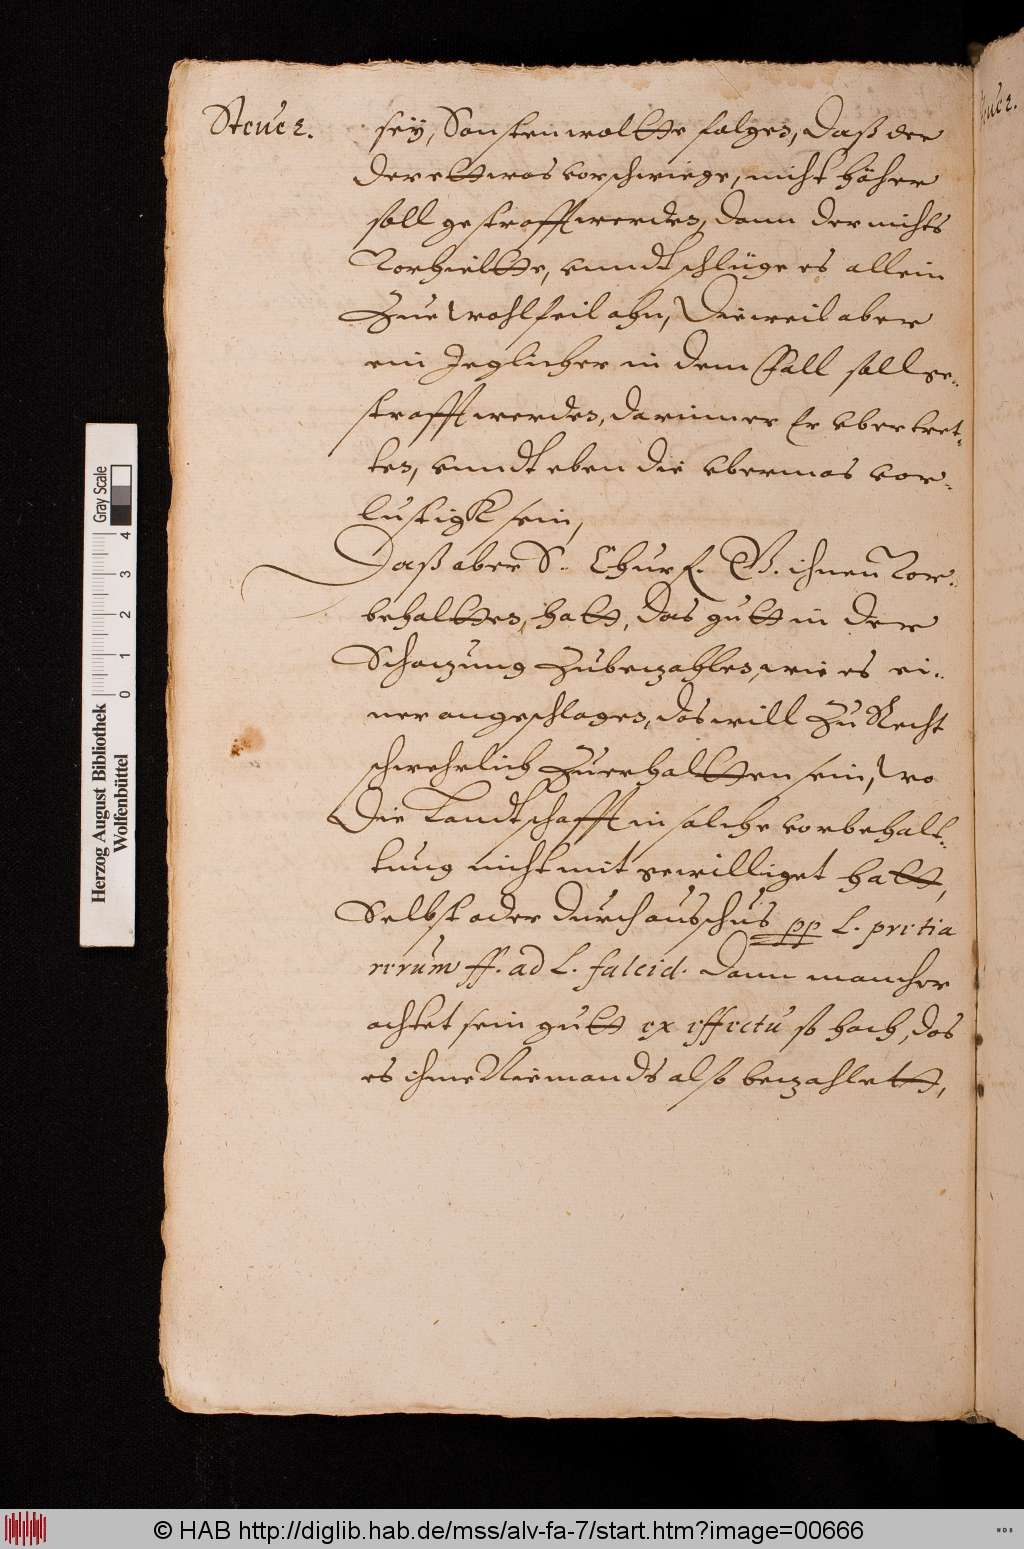 Steuer.
seÿ, Sonsten woltte folgen, Daß der
der ettwas vorschwiege, nicht höher
soll gestrafft werden, dann der nichts
Vorhieltte, vnndt schlüge es allein
Zue wohlfeil ahn, Dieweil aber
ein Jeglicher in dem Fall soll ge-
strafft werden, darinnen Er vbertret-
ten, vnndt eben die vbermas vor-
lustigk sein,
Daß aber S. Churf. G. ihnen Vor-
behaltten, hatt, das gutt in der
Schatzung Zubezahlen, wie es ei-
ner angeschlagen, das will Zu Recht
schwehrlich Zuerhaltten sein, wo
Die Landtschafft in solche vorbehalt-
tung nicht mit gewilliget hatt,
Selbst oder durch ausschus pp L. pretia
rerum ff. ad L. falcid. Dann mancher
achtet sein gutt ex effectu so hoch, das
es ihme Niemands also bezahlett,
Herzog August Bibliothek
Wolfenbüttel
0 1 2 3 4
Gray Scale
© HAB http://diglib.hab.de/mss/alv-fa-7/start.htm?image=00666